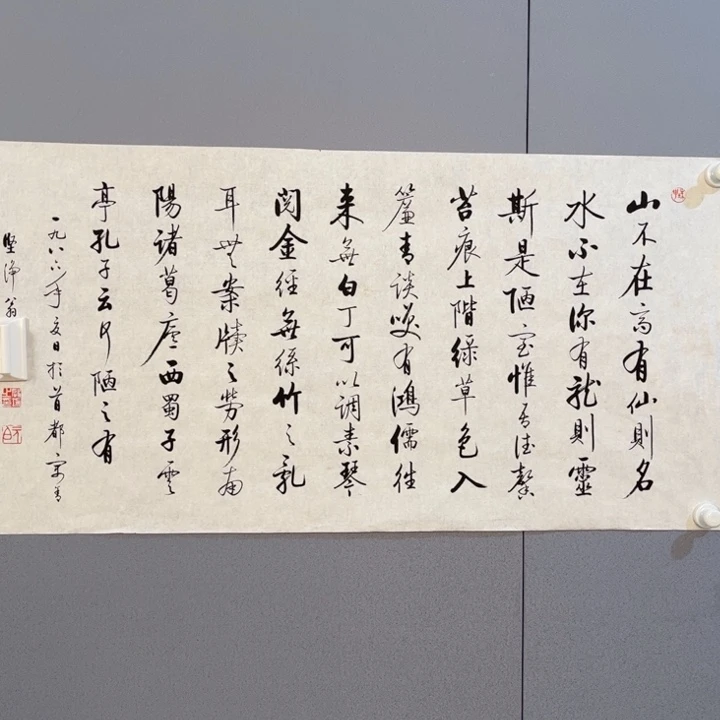 山不在高有仙則名
水不在深有龍則靈
斯是陋室惟吾德馨
苔痕上階綠草色入
簾青談笑有鴻儒往
来無白丁可以調素琴
閱金經無絲竹之亂
耳無案牘之勞形南
陽諸葛廬西蜀子雲
亭孔子云何陋之有
一九八六年夏日於首都
堅淨翁